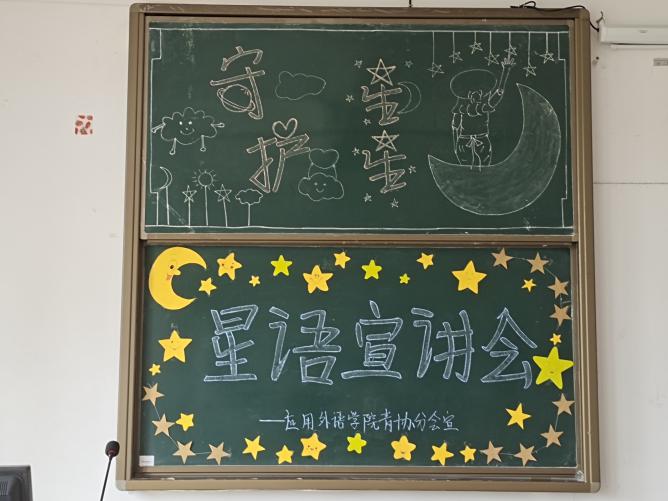 守护
星星
星语宣讲会
——应用外语学院青协分会宣